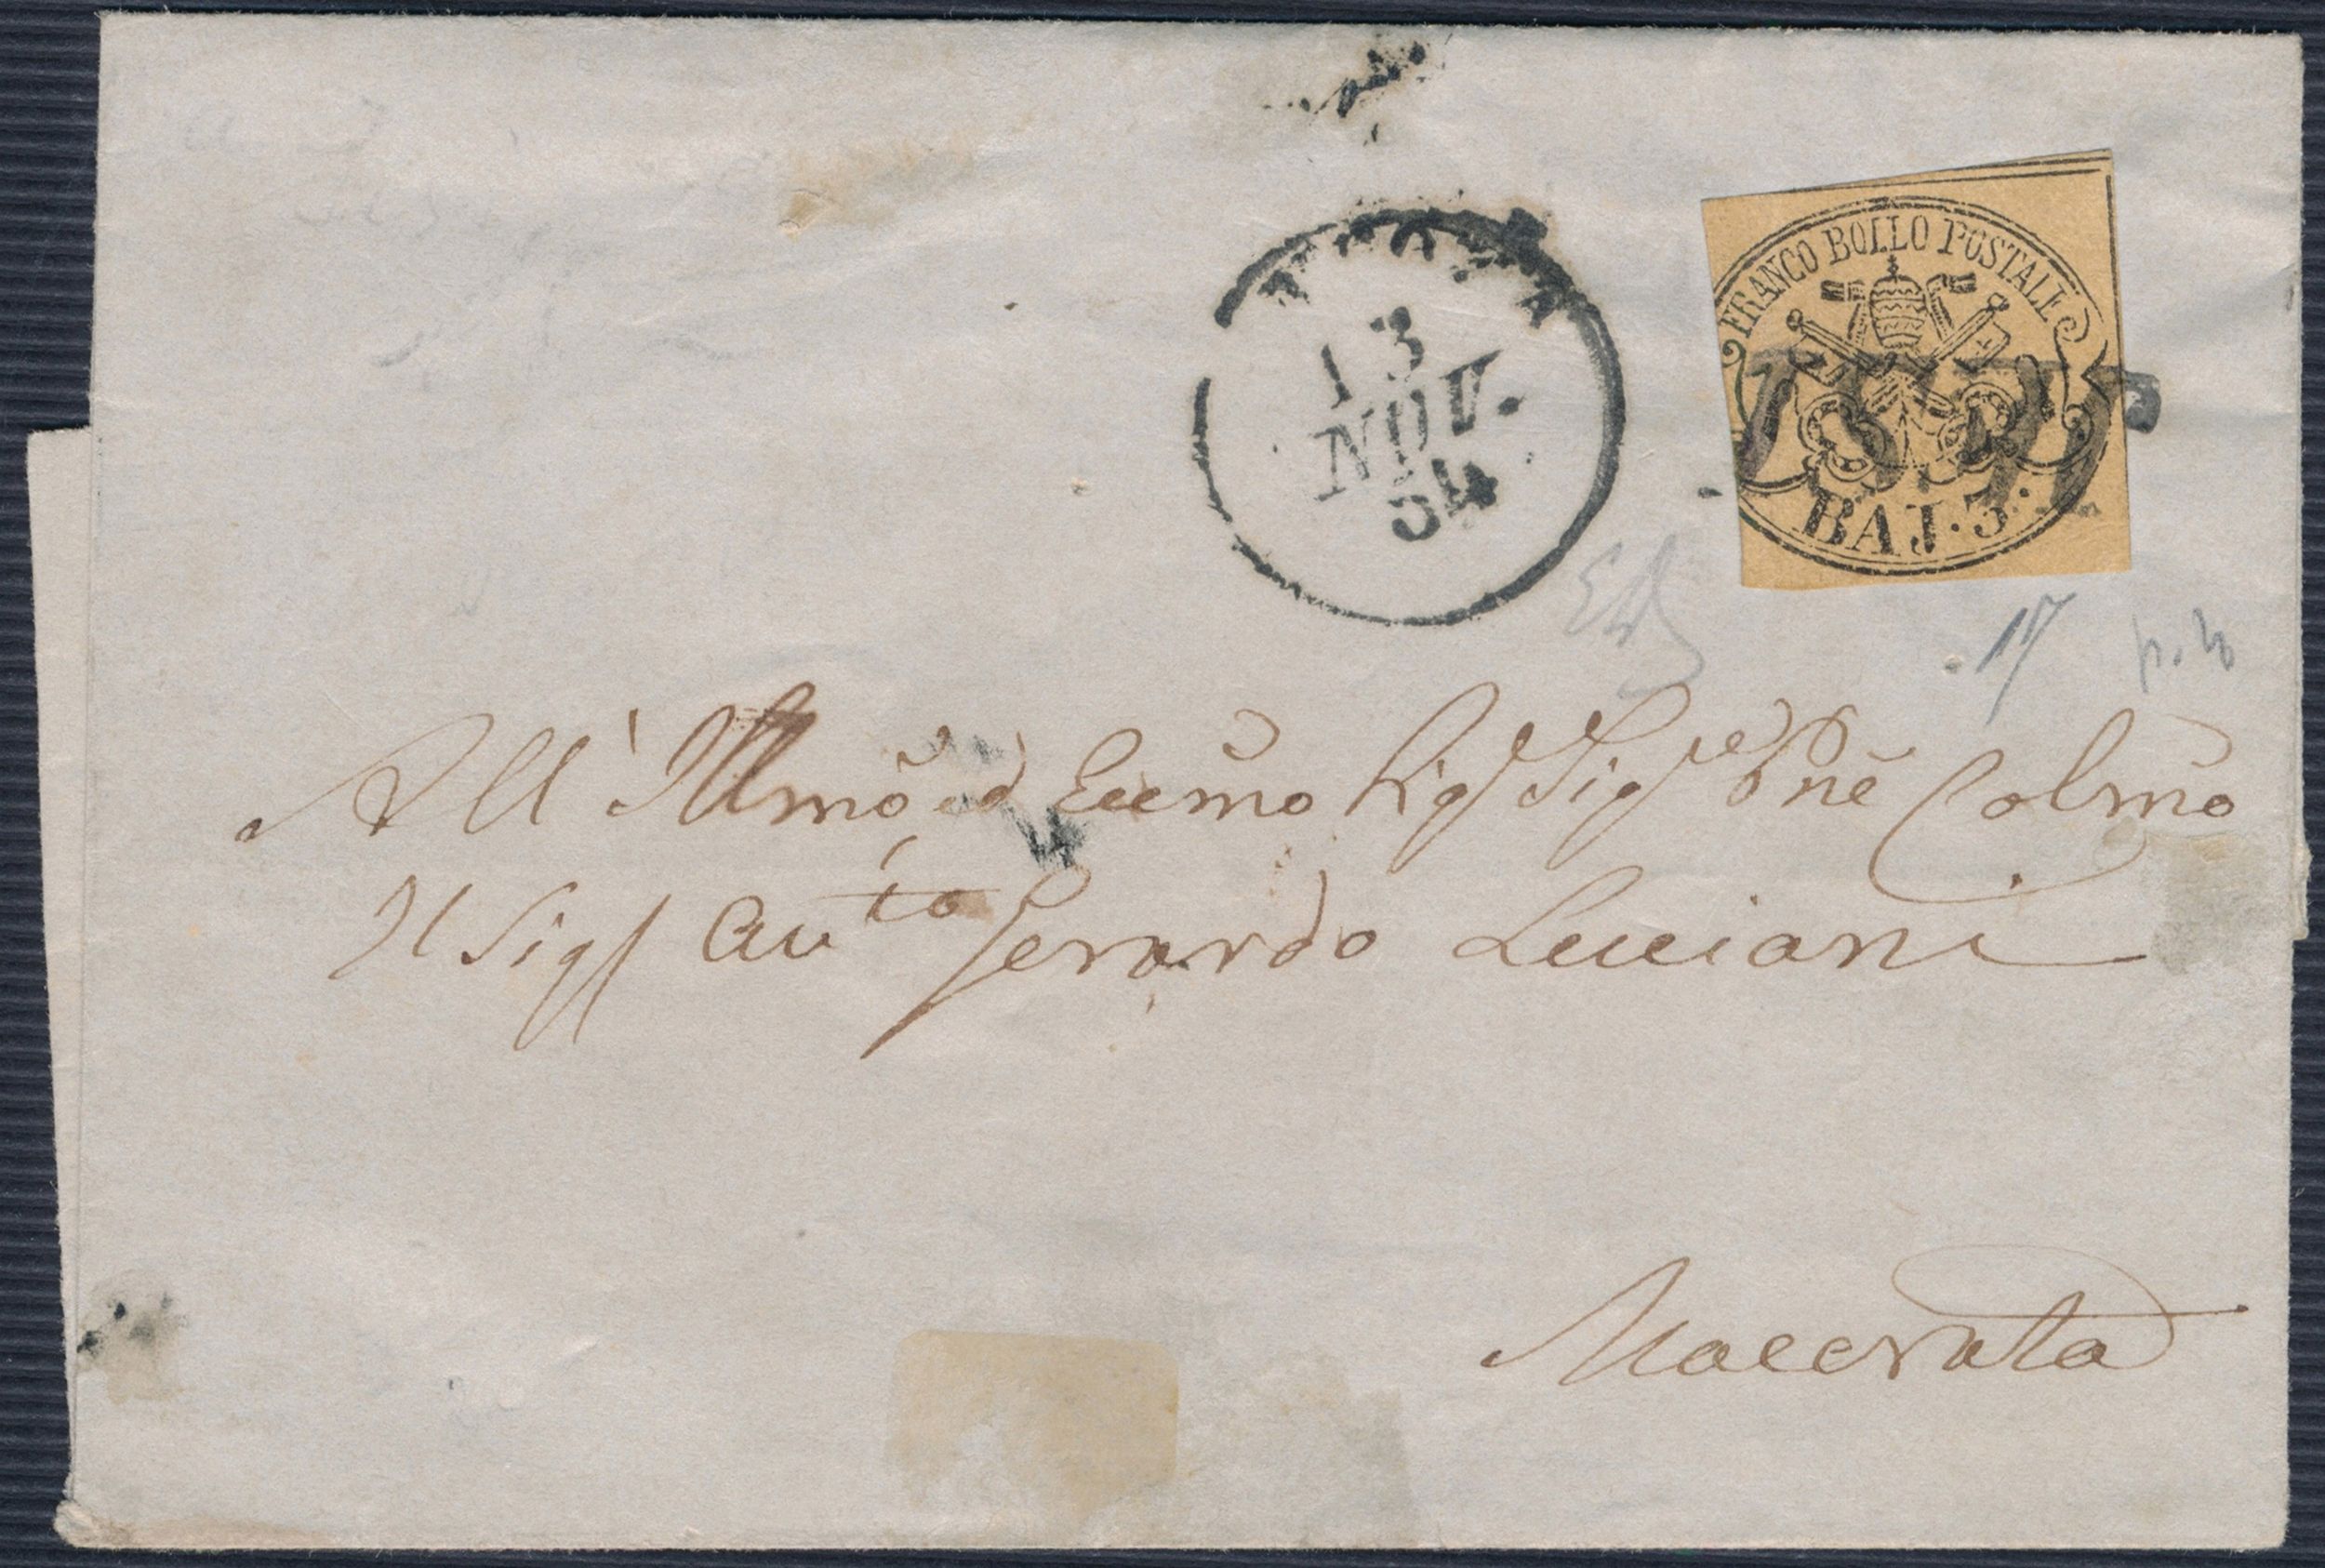 13
NOV.
54
FRANCO BOLLO POSTALE
BAJ. 3.
17
All' Illmõ ed Eccmõ Sig Sig Pñe Colmõ
Il Sig Avv.to Gerardo Luciani
Macerata